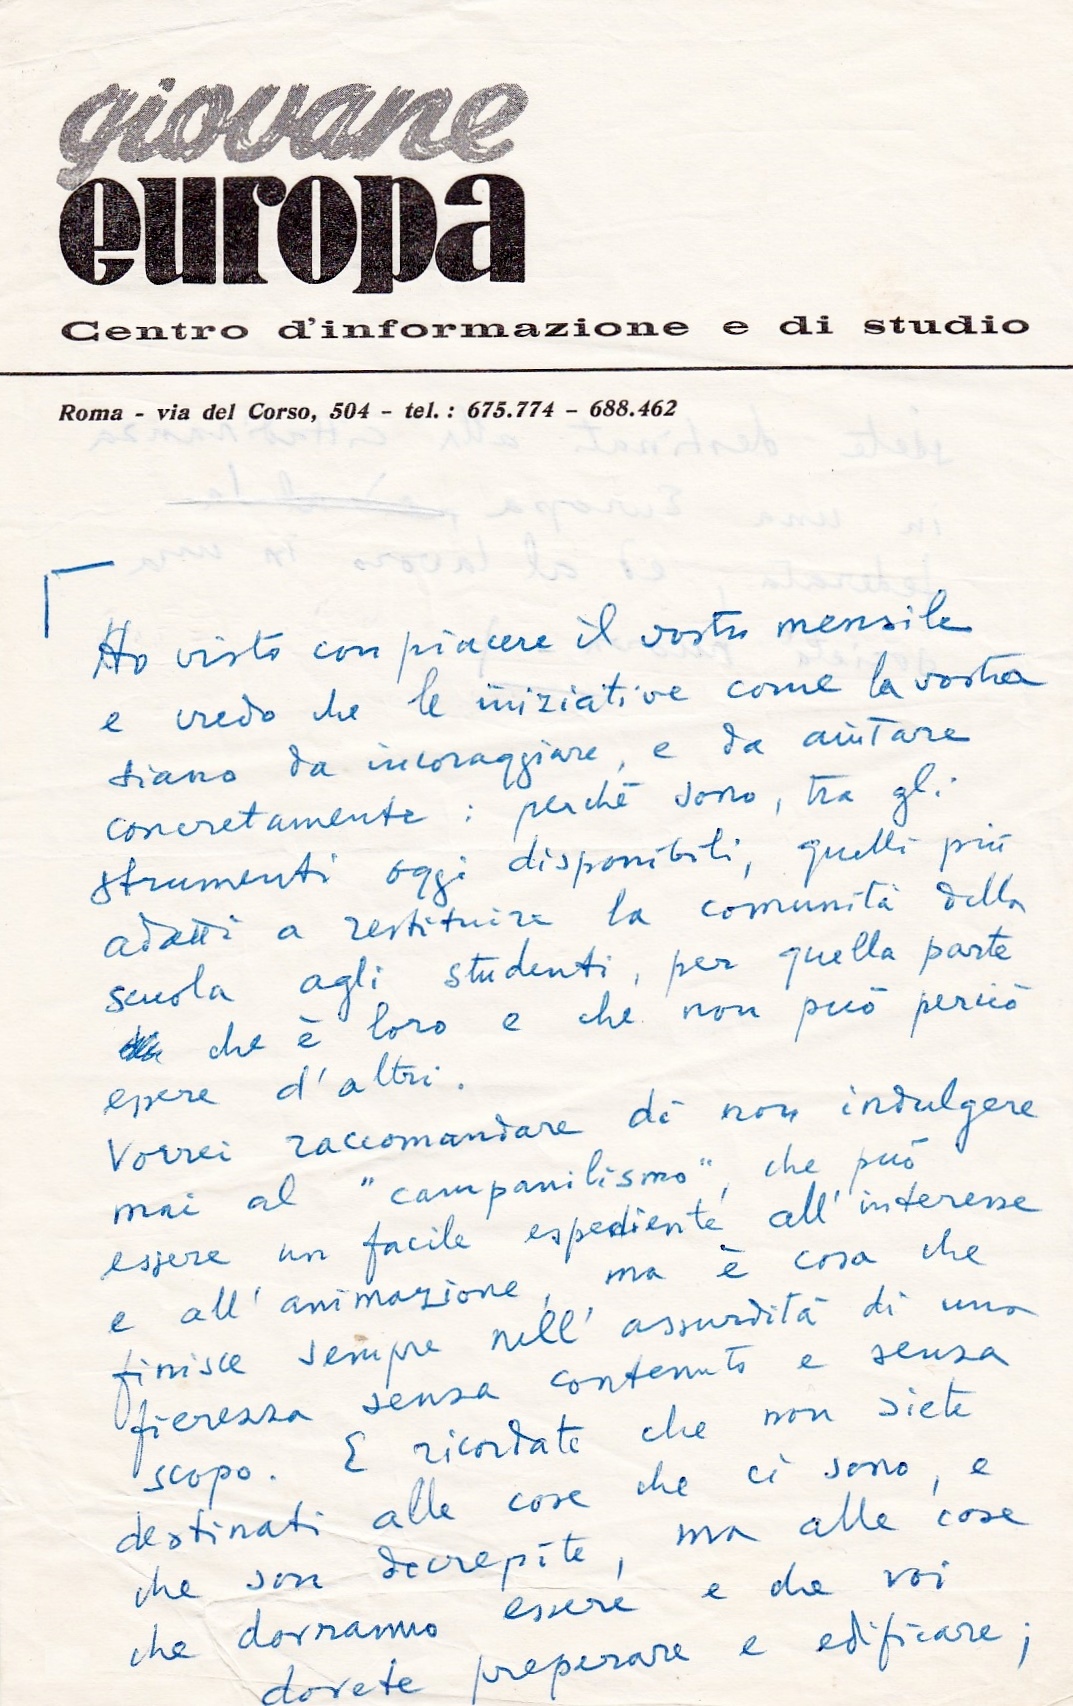 giovane
europa
Centro d'informazione e di studio
Roma - via del Corso, 504 - tel. : 675.774 - 688.462
Ho visto con piacere il vostro mensile
e credo che le iniziative come la vostra
siano da incoraggiare, e da aiutare
concretamente : perchè sono, tra gli
strumenti oggi disponibili, quelli più
adatti a restituire la comunità della
scuola agli studenti, per quella parte
che è loro e che non può perciò
essere d'altri.
Vorrei raccomandare di non indulgere
mai al "campanilismo", che può
essere un facile espediente all'interesse
e all'animazione, ma è cosa che
finisce sempre nell'assurdità di una
fierezza senza contenuto e senza
scopo. E ricordate che non siete
destinati alle cose che ci sono, e
che son decrepite, ma alle cose
che dovranno essere e che voi
dovete preparare e edificare;